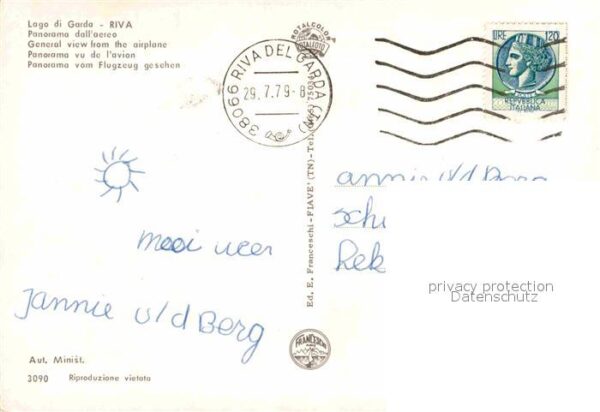 Lago di Garda - RIVA
Panorama dall'aereo
General view from the airplane
Panorama vu de l'avion
Panorama vom Flugzeug gesehen
ROTALCOLOR
38066 RIVA DEL GARDA (TN)
29.7.79-8
LIRE 120
REPVBBLICA
ITALIANA
Ed. E. Franceschi-FIAVE' (TN)-Tel.
annie v/d Berg
schi
Rek
privacy protection
Datenschutz
mooi weer
Jannie v/d Berg
FRANCESCHI
Aut. Minist.
3090 Riproduzione vietata